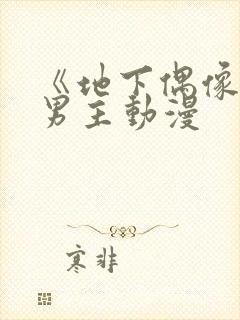 《地下偶像
男主動漫
寒非